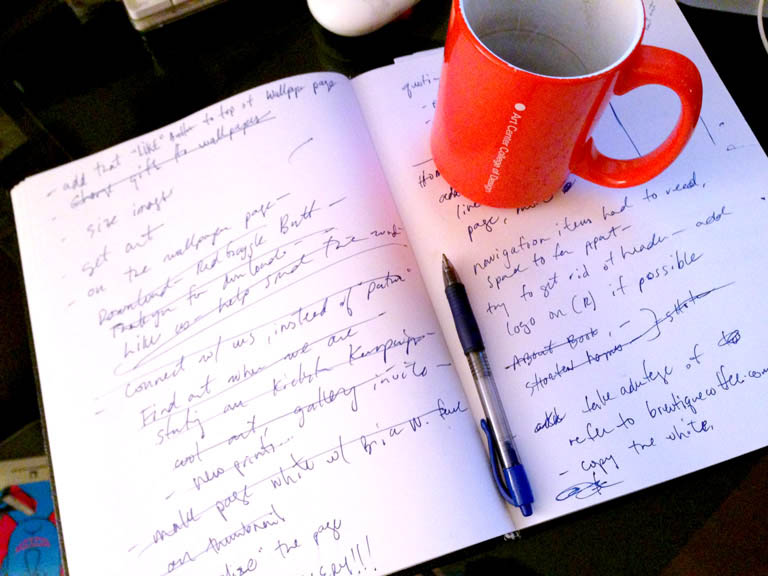 - add that "like" button to top of wallpaper page
- change gifs for wallpapers
- size images
- get art
- on the wallpaper page -
Download - Red bicycle
Thank you for downloads -
Like us - help send the word
- connect w/ us, instead of
Find out when we are
starting our Kickstarter Kampaign
cool art, gallery invite -
- new prints...
- make page white w/
on thumbnail
the page
!!!
quoti
Hom
add
line
page,
navigation items hard to read,
spread to far apart -
try to get rid of header - add
logo on (R) if possible
- About Book, -
shorten
- take advantage of
refer to brewtiquecoffee.com
- copy the white,
Art Center College of Design